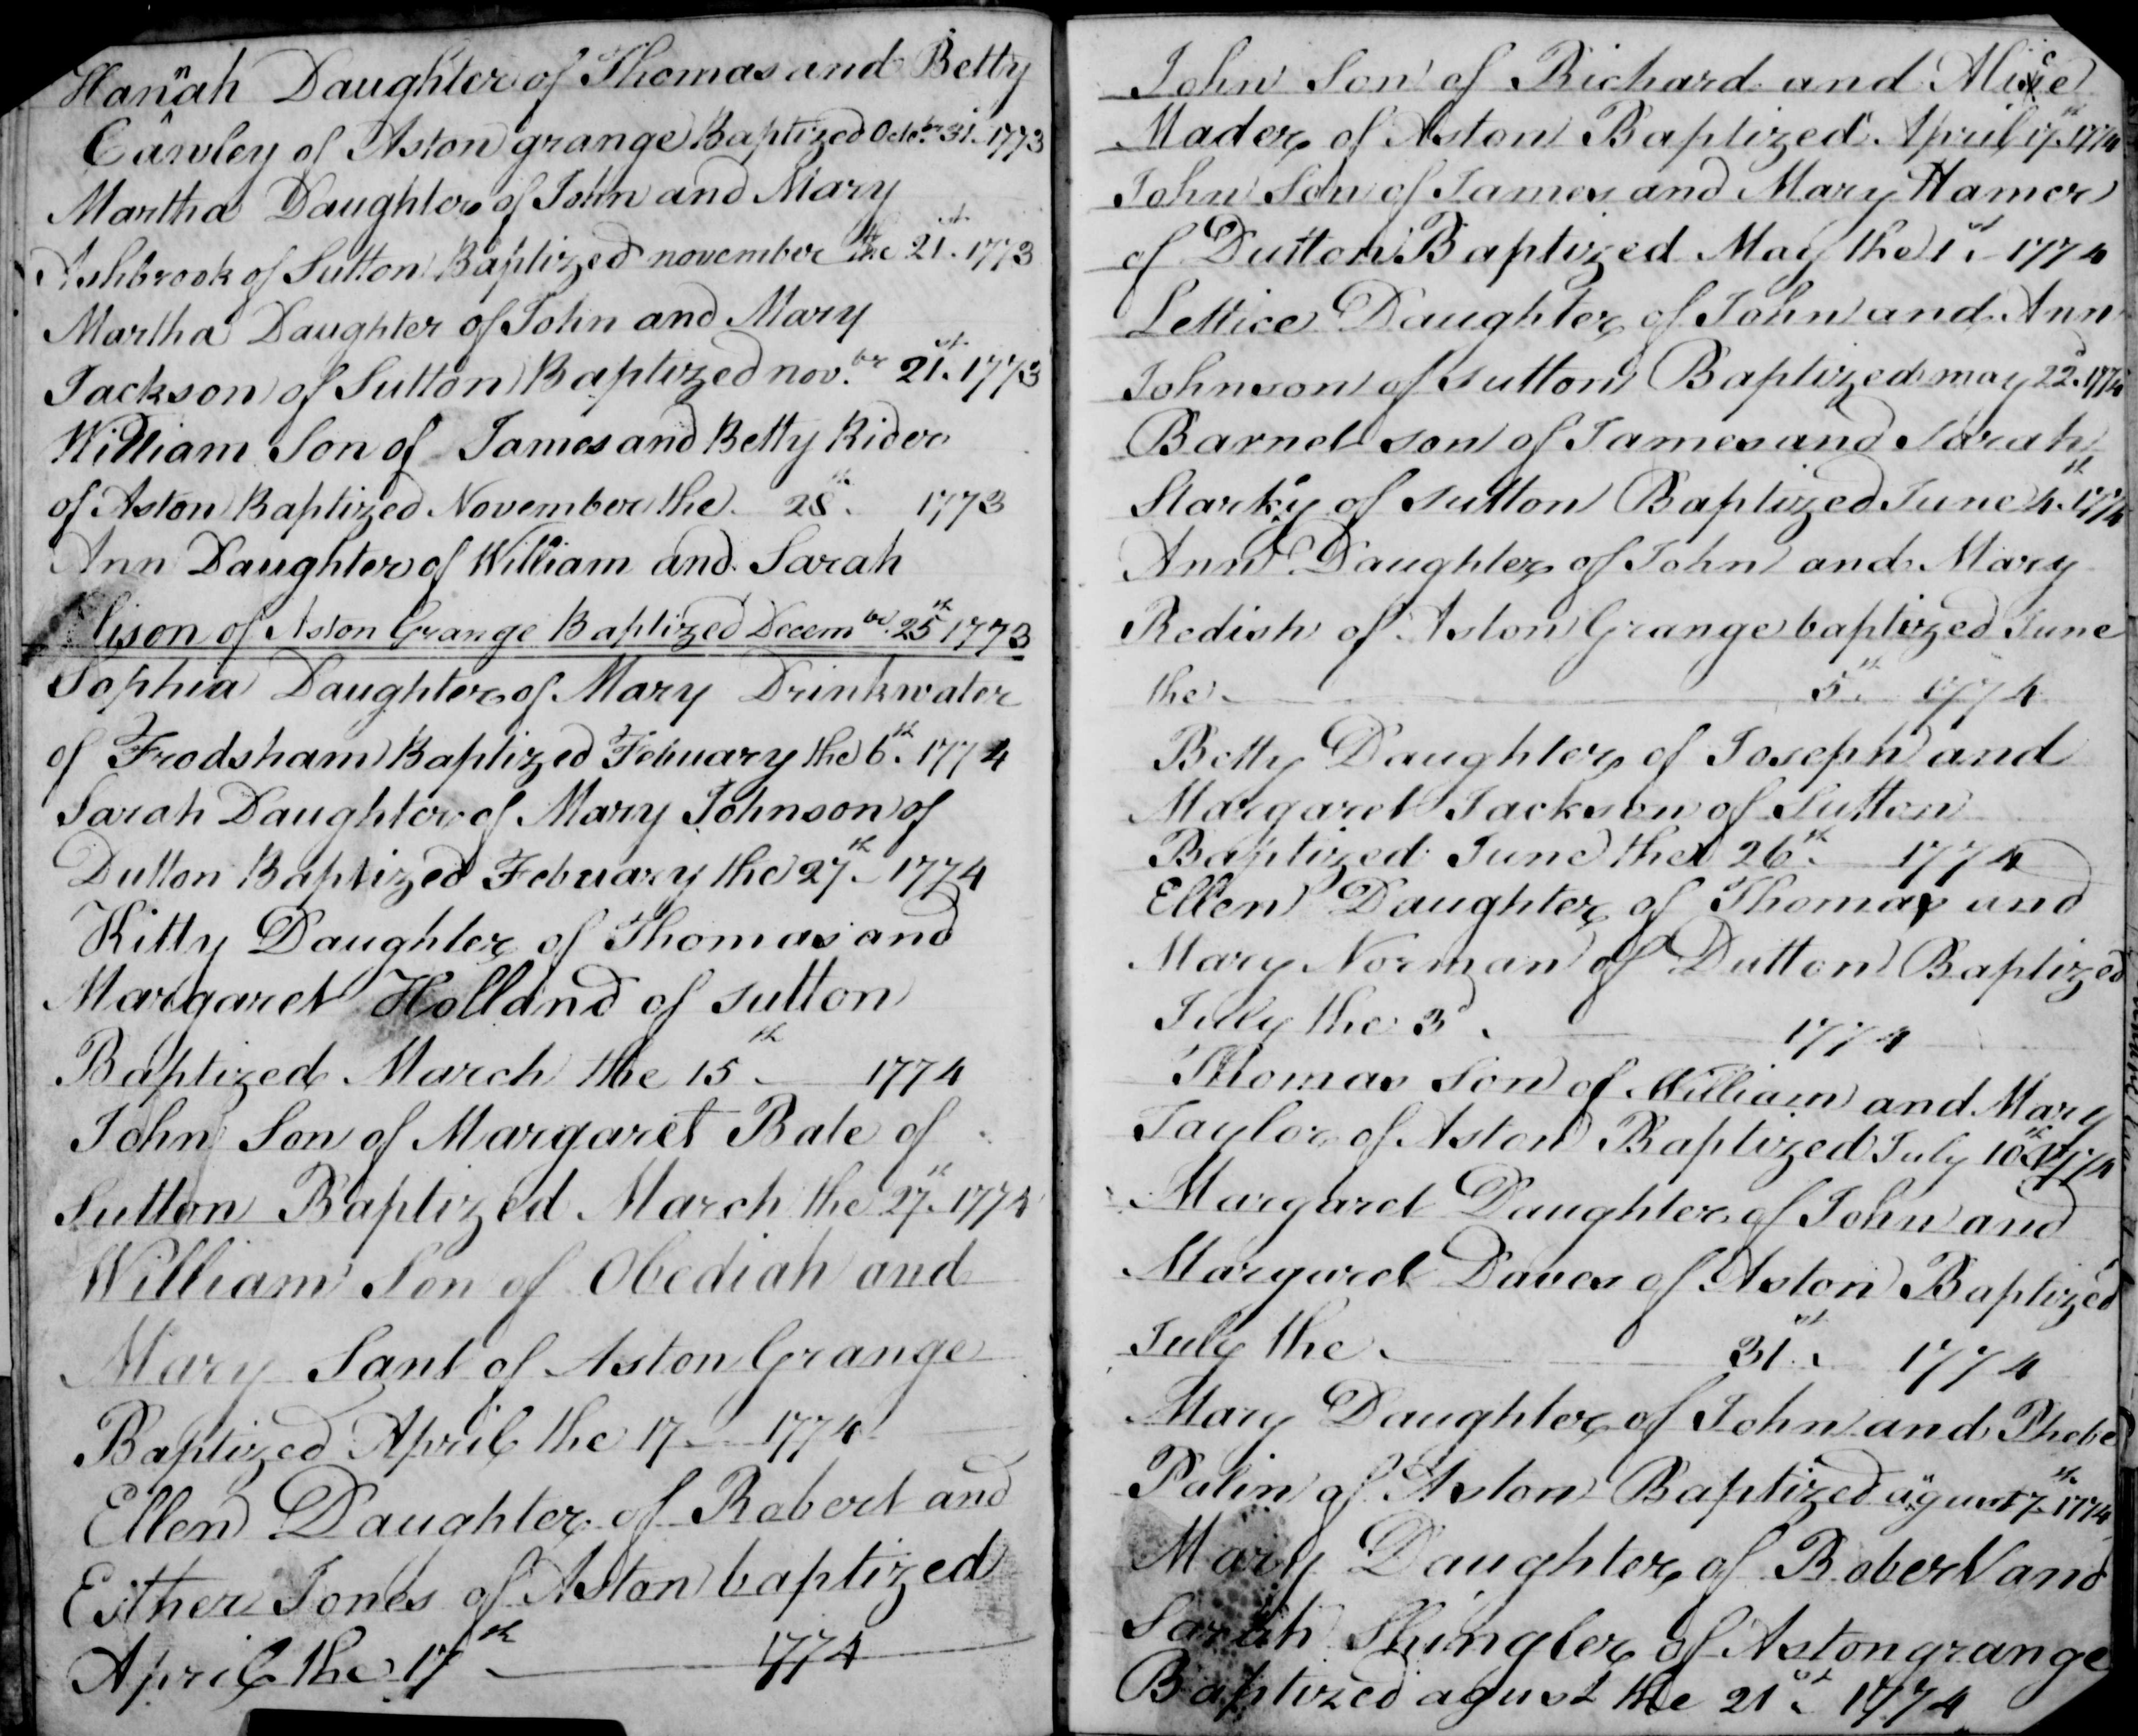 Hannah Daughter of Thomas and Betty
Cawley of Aston grange Baptized Octobr 31st 1773
Martha Daughter of John and Mary
Ashbrook of Sutton Baptized november the 21st 1773
Martha Daughter of John and Mary
Jackson of Sutton Baptized nov.br 21st 1773
William Son of James and Betty Rider
of Aston Baptized November the 28th 1773
Ann Daughter of William and Sarah
lison of Aston Grange Baptized Decembr 25th 1773
Sophia Daughter of Mary Drinkwater
of Frodsham Baptized Febuary the 6th 1774
Sarah Daughter of Mary Johnson of
Dutton Baptized February the 27th 1774
Kitty Daughter of Thomas and
Margaret Holland of sutton
Baptized March the 15th 1774
John Son of Margaret Bate of
Sutton Baptized March the 27th 1774
William Son of Obediah and
Mary Sant of Aston Grange
Baptized April the 17 1774
Ellen Daughter of Robert and
Esther Jones of Aston baptized
April the 17th 1774
John Son of Richard and Alice
Mader of Aston Baptized April 17th 1774
John Son of James and Mary Hamer
of Dutton Baptized May the 1st 1774
Lettice Daughter of John and Ann
Johnson of sutton Baptized may 22d 1774
Barnet son of James and Sarah
Starkey of sutton Baptized June 4th 1774
Ann Daughter of John and Mary
Redish of Aston Grange baptized June
the 5th 1774
Betty Daughter of Joseph and
Margaret Jackson of Sutton
Baptized June the 26th 1774
Ellen Daughter of Thomas and
Mary Norman of Dutton Baptized
July the 3d 1774
Thomas Son of William and Mary
Taylor of Aston Baptized July 10th 1774
Margaret Daughter of John and
Margaret Daves of Aston Baptized
July the 31st 1774
Mary Daughter of John and Phebe
Palin of Aston Baptized agust 7th 1774
Mary Daughter of Robert and
Sarah Shingler of Aston grange
Baptized agust the 21st 1774